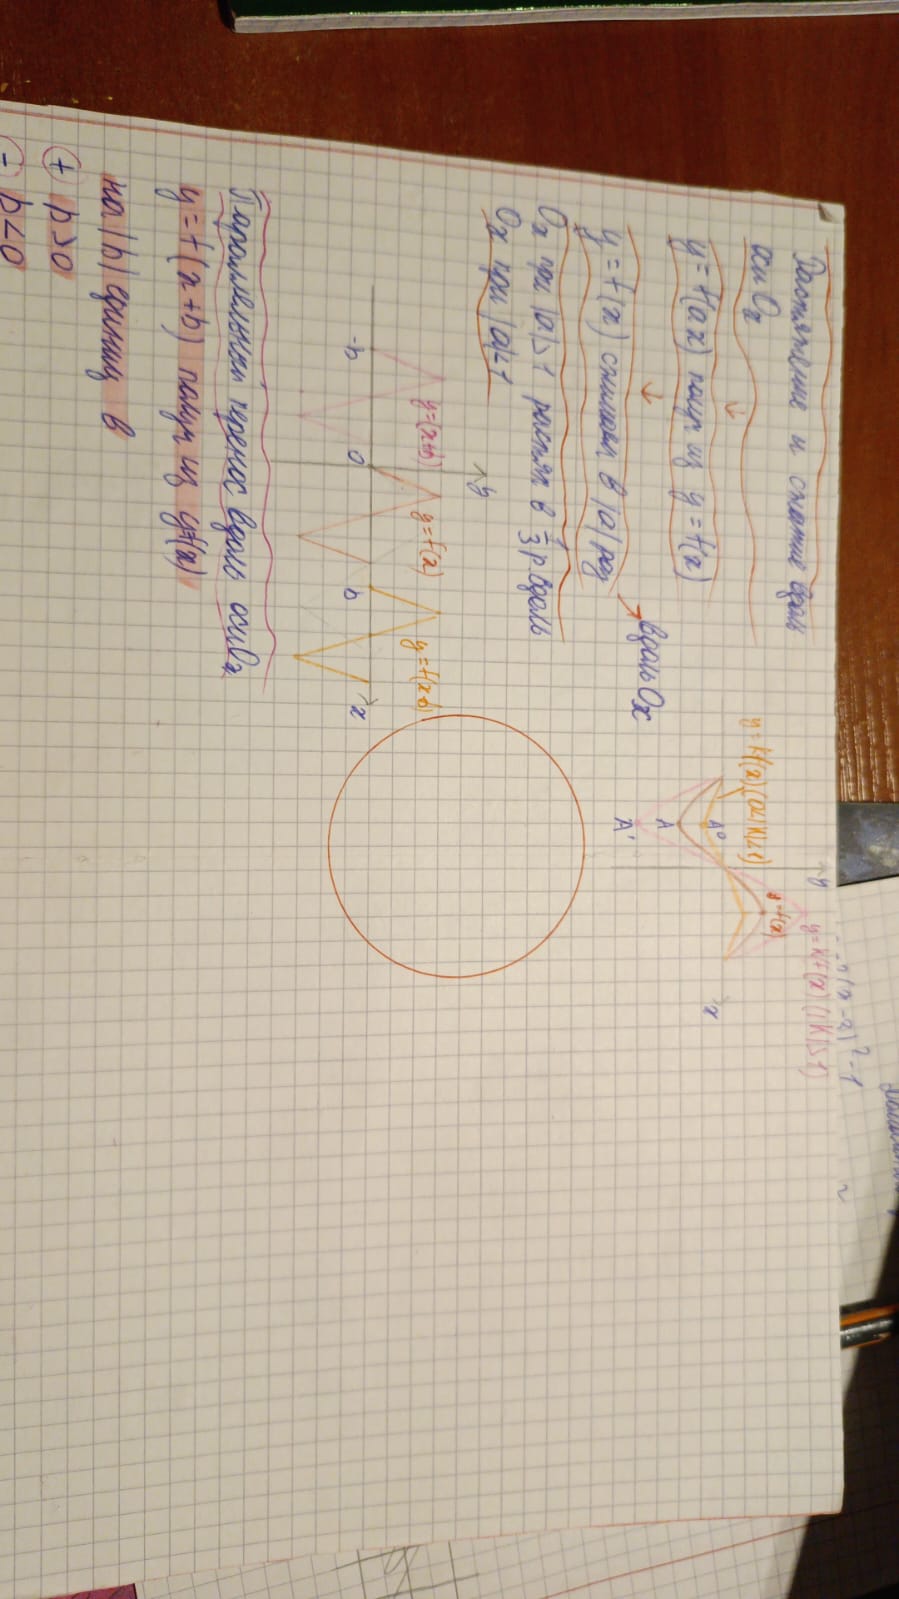 Растяжение и сжатие вдоль
оси Ox
y=f(ax) получ из y=f(x)
y=f(x) сжимаем в |a| раз
вдоль Ox
Ox при |a|>1 растяг в 1/3 р. вдоль
Ox при |a|<1
y
y=(x+b)
y=f(x)
y=f(x-b)
-b
0
b
x
Параллельный перенос вдоль оси Ox
y=f(x+b) получ из y=f(x)
на |b| единиц в
+ b>0
- b<0
y
y=kf(x) (|k|>1)
y=f(x)
y=kf(x) (0<|k|<1)
A⁰
x
A
A'